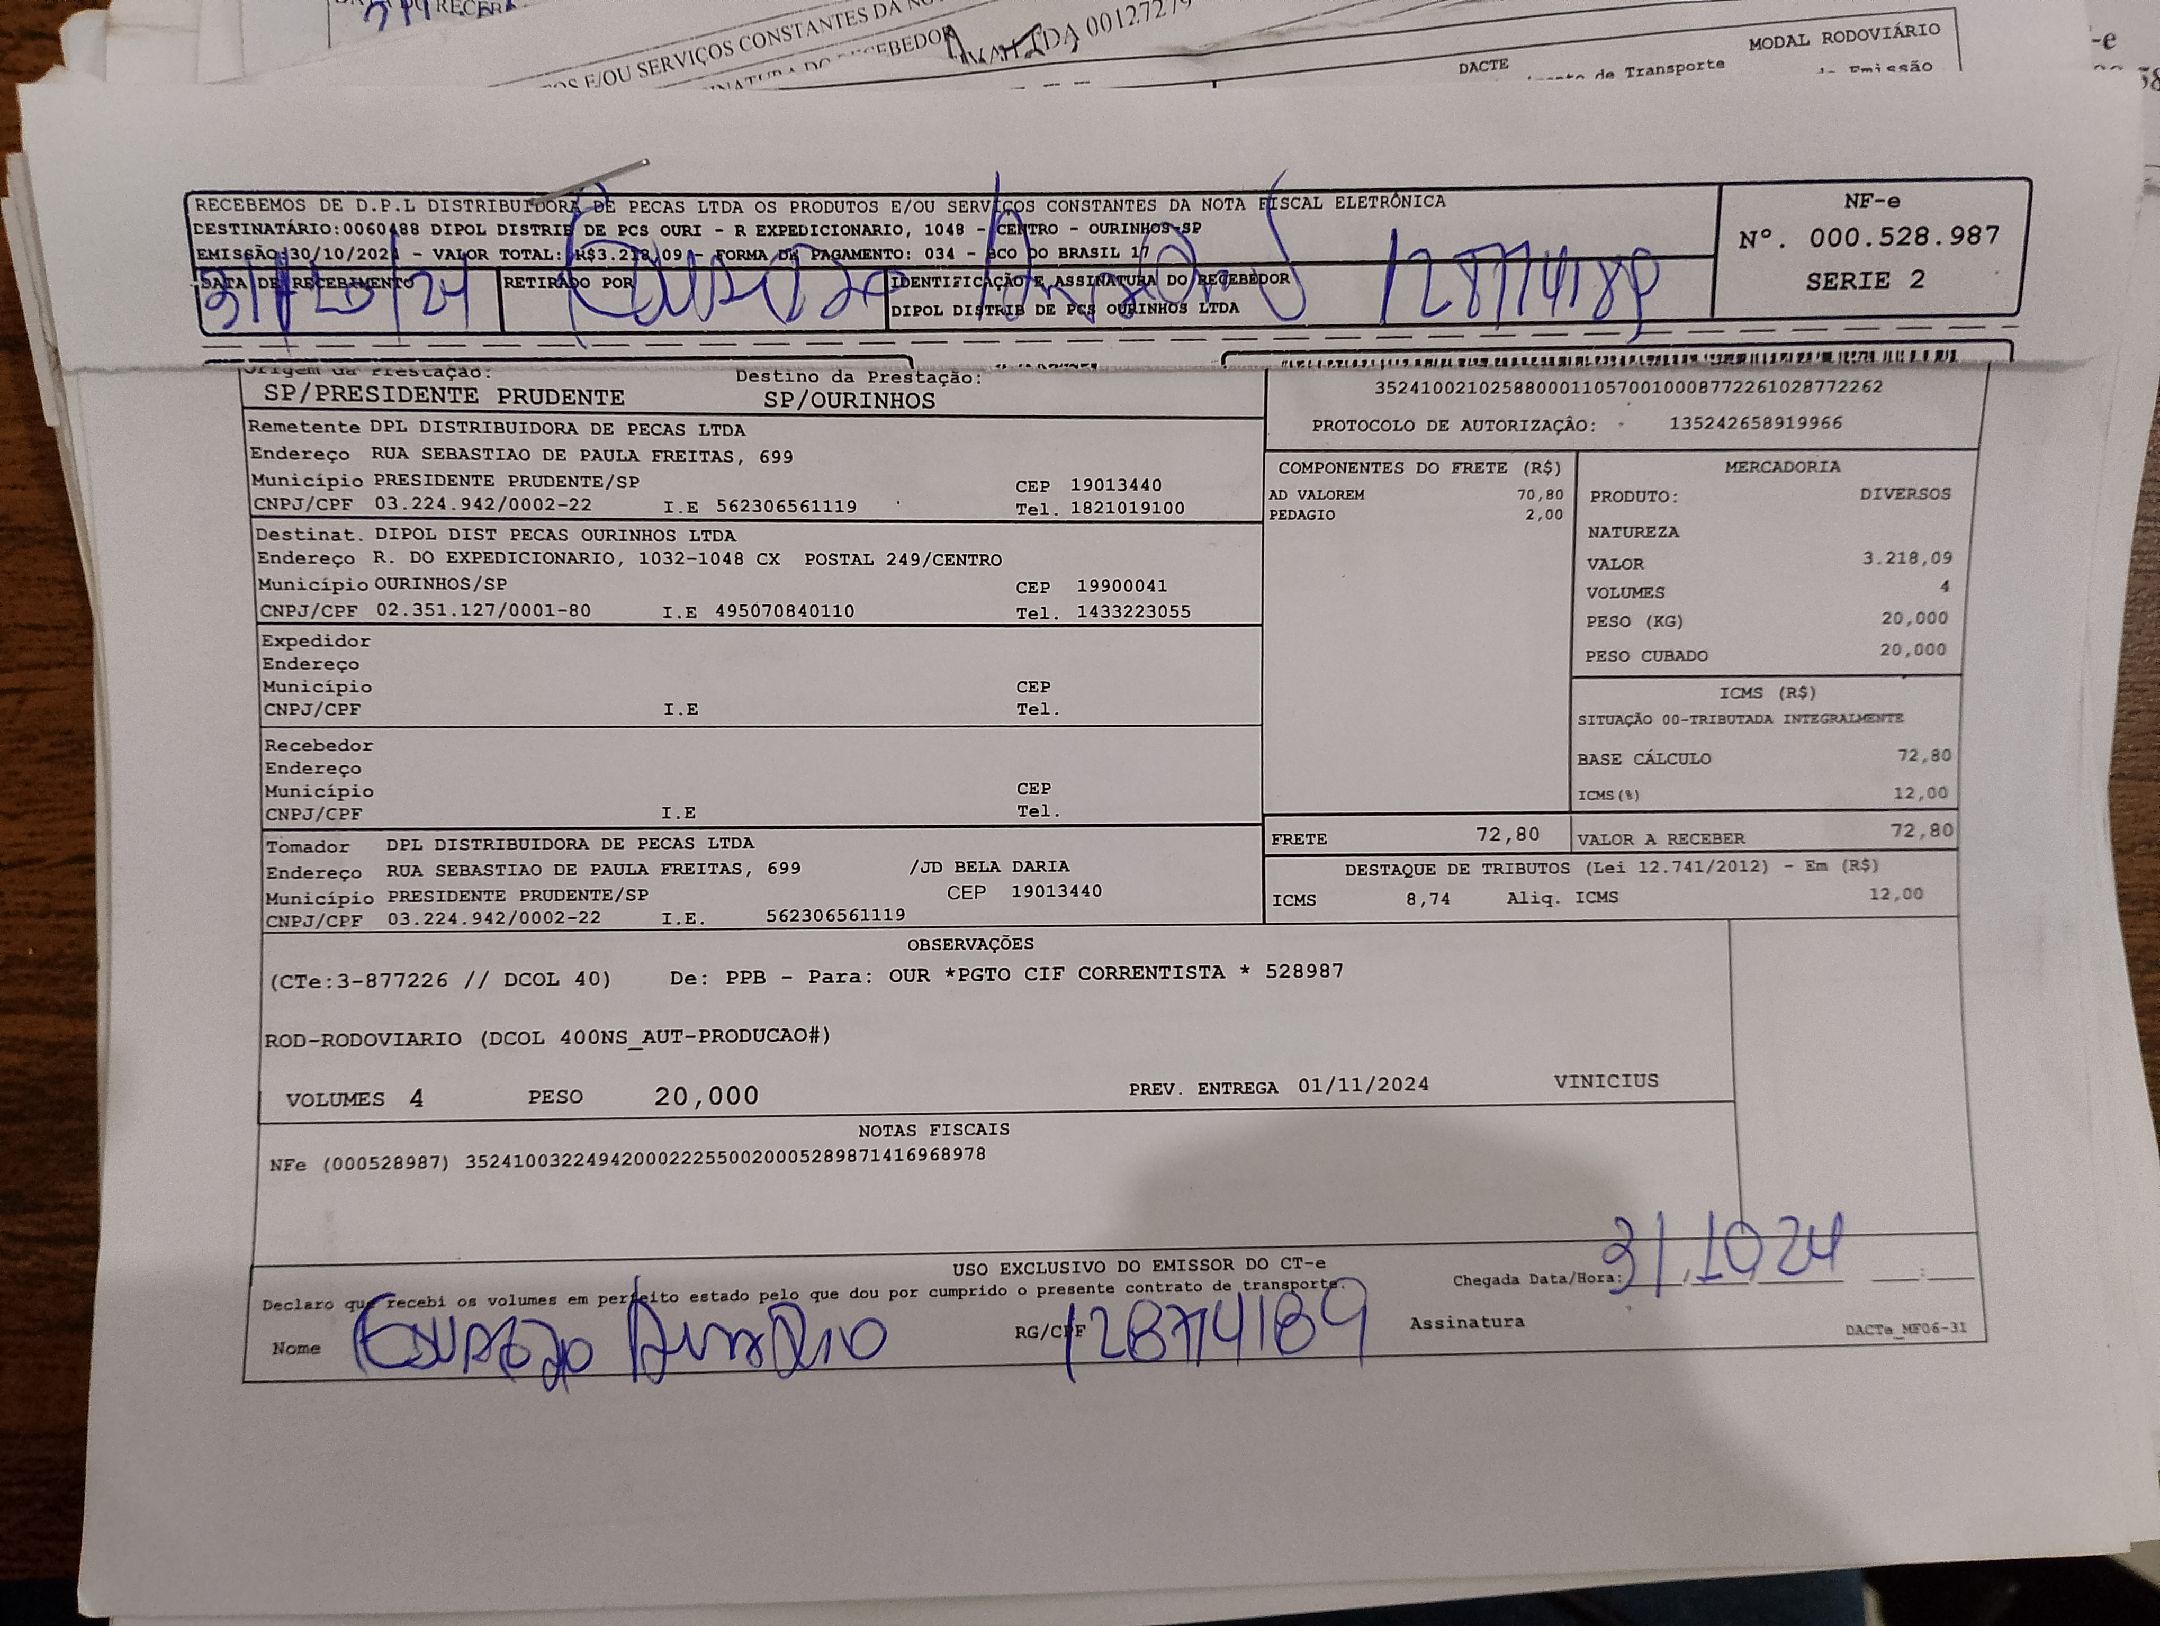 DO RECEB
E/OU SERVIÇOS CONSTANTES DA
CEBEDOR
LTDA 0012727
DACTE
MODAL RODOVIÁRIO
de Transporte
Emissão
-e
RECEBEMOS DE D.P.L DISTRIBUIDORA DE PECAS LTDA OS PRODUTOS E/OU SERVIÇOS CONSTANTES DA NOTA FISCAL ELETRÔNICA
DESTINATÁRIO:0060488 DIPOL DISTRIB DE PCS OURI - R EXPEDICIONARIO, 1048 - CENTRO - OURINHOS-SP
EMISSÃO:30/10/2024 - VALOR TOTAL: R$3.218,09 - FORMA DE PAGAMENTO: 034 - BCO DO BRASIL 17
DATA DE RECEBIMENTO
31/10/24
RETIRADO POR
IDENTIFICAÇÃO E ASSINATURA DO RECEBEDOR
DIPOL DISTRIB DE PCS OURINHOS LTDA
128774189
NF-e
Nº. 000.528.987
SERIE 2
Origem da Prestação:
SP/PRESIDENTE PRUDENTE
Destino da Prestação:
SP/OURINHOS
35241002102588000110570010008772261028772262
PROTOCOLO DE AUTORIZAÇÃO: 135242658919966
Remetente DPL DISTRIBUIDORA DE PECAS LTDA
Endereço RUA SEBASTIAO DE PAULA FREITAS, 699
Município PRESIDENTE PRUDENTE/SP CEP 19013440
CNPJ/CPF 03.224.942/0002-22 I.E 562306561119 Tel. 1821019100
Destinat. DIPOL DIST PECAS OURINHOS LTDA
Endereço R. DO EXPEDICIONARIO, 1032-1048 CX POSTAL 249/CENTRO
Município OURINHOS/SP CEP 19900041
CNPJ/CPF 02.351.127/0001-80 I.E 495070840110 Tel. 1433223055
Expedidor
Endereço
Município CEP
CNPJ/CPF I.E Tel.
Recebedor
Endereço
Município CEP
CNPJ/CPF I.E Tel.
Tomador DPL DISTRIBUIDORA DE PECAS LTDA
Endereço RUA SEBASTIAO DE PAULA FREITAS, 699 /JD BELA DARIA
Município PRESIDENTE PRUDENTE/SP CEP 19013440
CNPJ/CPF 03.224.942/0002-22 I.E. 562306561119
COMPONENTES DO FRETE (R$)
AD VALOREM 70,80
PEDAGIO 2,00
MERCADORIA
PRODUTO: DIVERSOS
NATUREZA
VALOR 3.218,09
VOLUMES 4
PESO (KG) 20,000
PESO CUBADO 20,000
ICMS (R$)
SITUAÇÃO 00-TRIBUTADA INTEGRALMENTE
BASE CÁLCULO 72,80
ICMS(%) 12,00
FRETE 72,80
VALOR A RECEBER 72,80
DESTAQUE DE TRIBUTOS (Lei 12.741/2012) - Em (R$)
ICMS 8,74 Aliq. ICMS 12,00
OBSERVAÇÕES
(CTe:3-877226 // DCOL 40) De: PPB - Para: OUR *PGTO CIF CORRENTISTA * 528987
ROD-RODOVIARIO (DCOL 400NS_AUT-PRODUCAO#)
VOLUMES 4 PESO 20,000 PREV. ENTREGA 01/11/2024 VINICIUS
NOTAS FISCAIS
NFe (000528987) 35241003224942000222550020005289871416968978
USO EXCLUSIVO DO EMISSOR DO CT-e
Declaro que recebi os volumes em perfeito estado pelo que dou por cumprido o presente contrato de transporte.
Chegada Data/Hora: 31/10/24 :
Nome
RG/CPF 128774189
Assinatura
DACTe_MF06-31